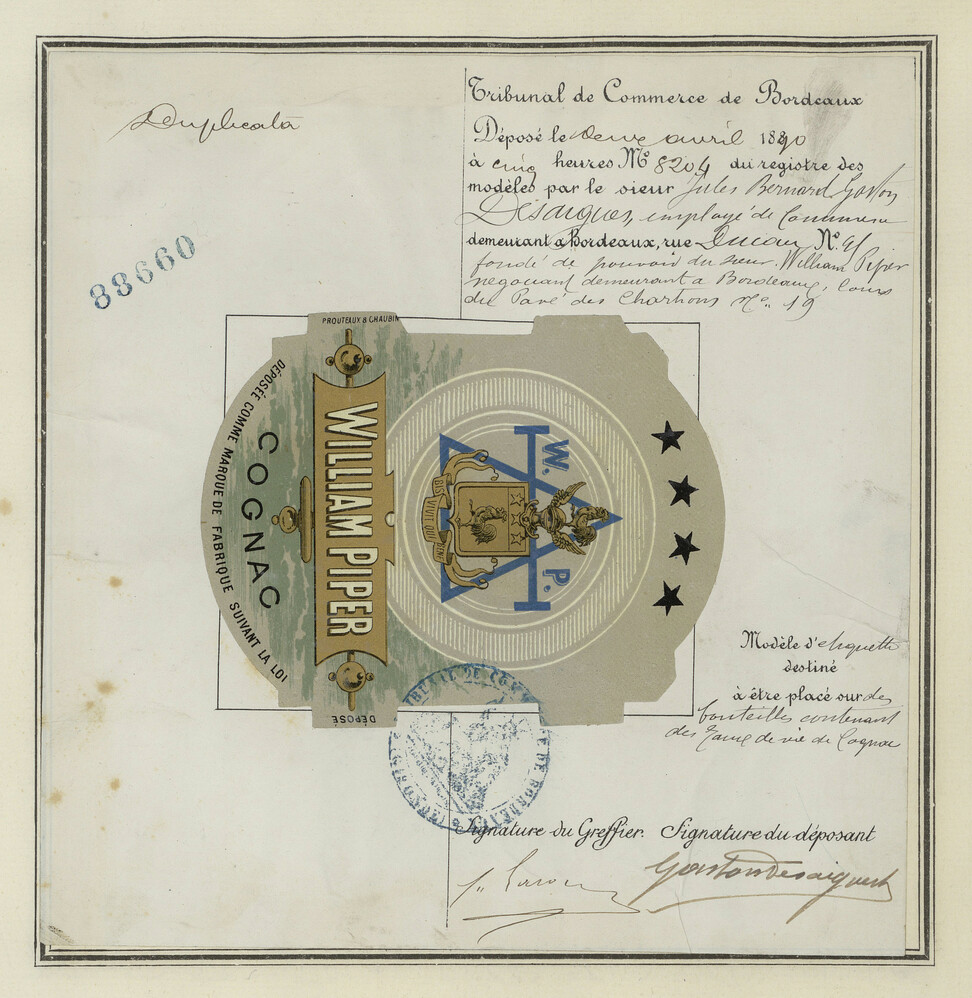 Duplicata
88660
Tribunal de Commerce de Bordeaux
Déposé le deux avril 1890
à cinq heures No 8204 du registre des
modèles par le sieur Jules Bernard Gaston
Désaigues, employé de Commerce
demeurant a Bordeaux, rue Ducau, No 91
fondé de pouvoir du sieur William Piper
négociant demeurant a Bordeaux, Cours
du Pavé des Chartrons No 19
PROUTEAUX & CHAUBIN
DÉPOSÉE COMME MARQUE DE FABRIQUE SUIVANT LA LOI
COGNAC
WILLIAM PIPER
BIS VIVIT QUI BENE
W. P.
DÉPOSÉ
Modèle d'étiquette
destiné
à être placé sur des
bouteilles contenant
des Eaux de vie de Cognac
TRIBUNAL DE COMMERCE DE BORDEAUX
Signature du Greffier. Signature du déposant
Gaston Desaigues